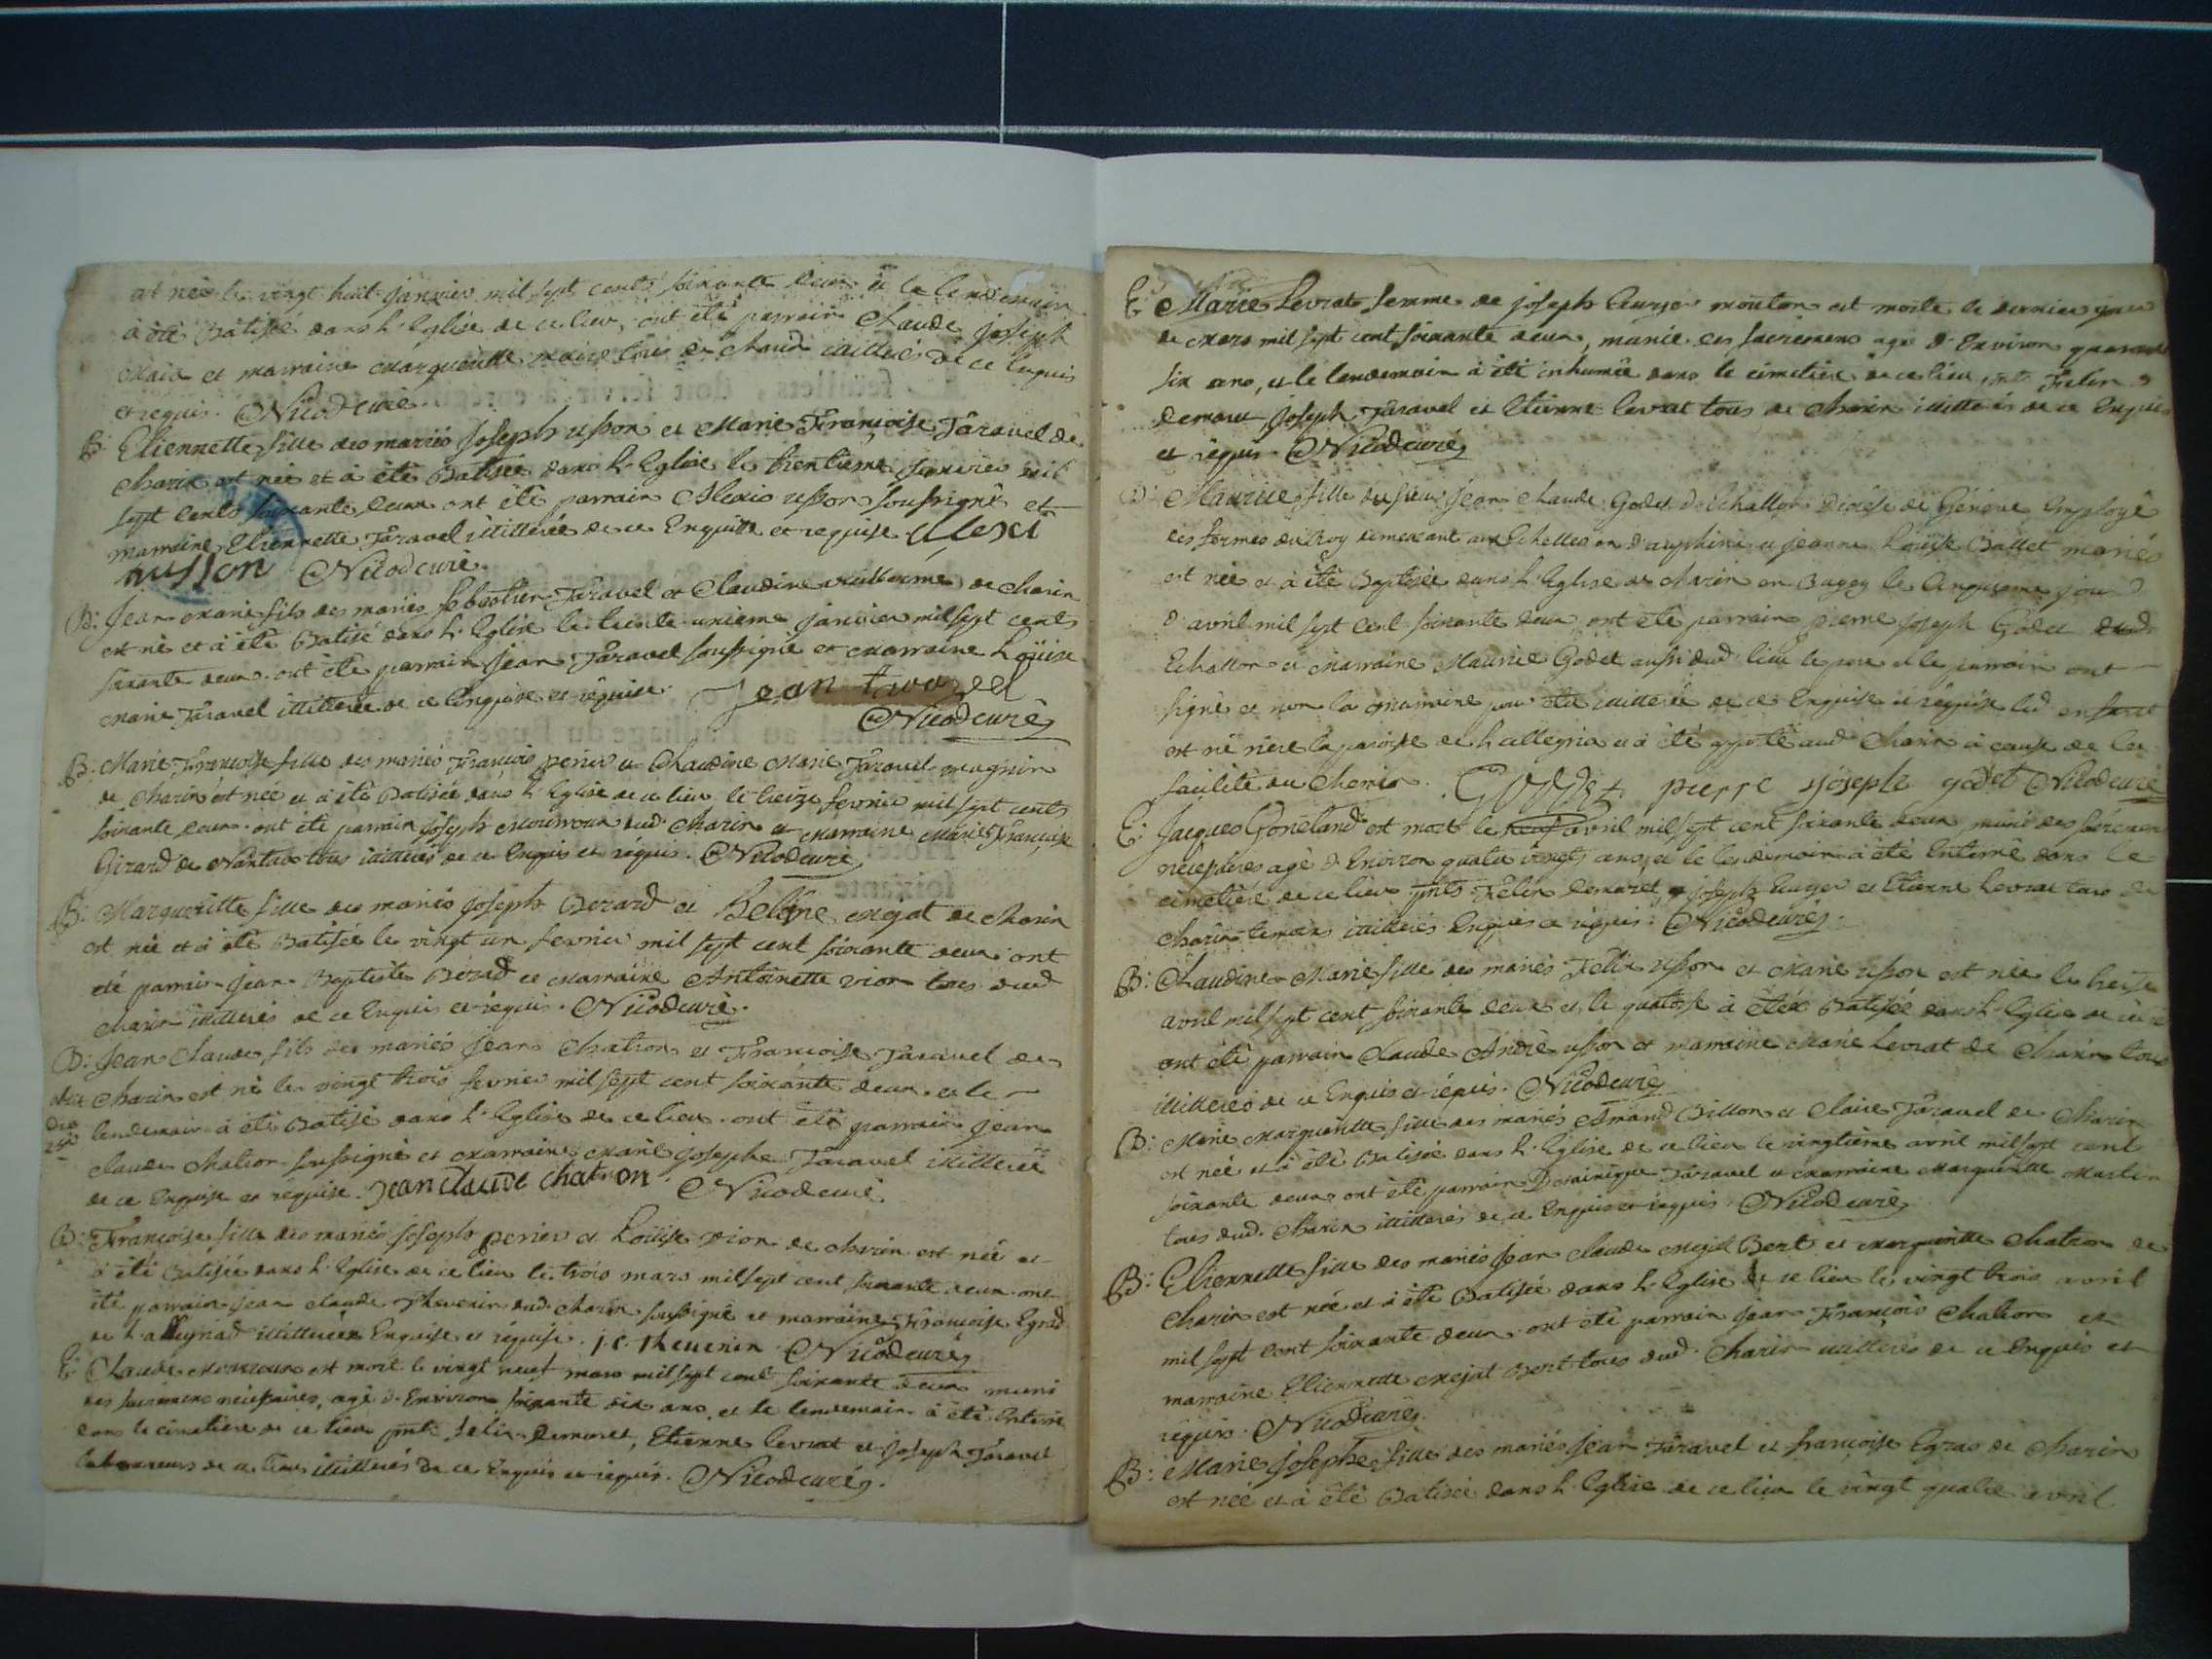 est née le vingt huit janvier mil sept cents soixante deux et le lendemain
à été Batisée dans l'Eglise de ce lieu, ont été parrain Claude joseph
et marraine Marguerite tous de Charix illitterés de ce Enquis
et requis. Nicod curé.
B: Etiennette fille des mariés joseph upson et Marie Françoise Taravel de
Charix est née et à été Batisée dans l'Eglise le trentieme janvier mil
sept cents soixante deux ont été parrain Alexis upson soussigné et
marraine Etiennette Taravel illitterée de ce Enquise et requise Alexi
Nicod curé.
B: Jean Marie fils des mariés Sebastien Taravel et Claudine de Charix
est né et à été Batisé dans l'Eglise le trente unième janvier mil sept cents
soixante deux. ont été parrain Jean Taravel soussigné et Marraine Loüise
Marie Taravel illitterée de ce Enquise et requise. Jean
Nicod curé
B. Marie Françoise fille des mariés François perier et Claudine Marie Taravel
de Charix est née et à été Batisée dans l'Eglise de ce lieu le treize fevrier mil sept cents
soixante deux. ont été parrain joseph dud. Charix et Marraine Marie Françoise
Girard de Nantua tous illitterés de ce Enquis et réquis. Nicod curé
B: Margueritte fille des mariés joseph Berard et Heléne de Charix
est née et à été Batisée le vingt un fevrier mil sept cent soixante deux. ont
été parrain jean Baptiste Bérard et Marraine Antoinette vion tous dud
Charix illitterés de ce Enquis et requis. Nicod curé.
B: Jean Claude fils des mariés Jean Chatron et Françoise Taravel de
Charix est né le vingt trois fevrier mil sept cent soixante deux. et le
lendemain à été Batisé dans l'Eglise de ce lieu. ont été parrain Jean
Claude Chatron soussigné et Marraine Marie josephe Taravel illitterée
de ce Enquise et requise. Jean Claude chatron. Nicod curé.
B: Françoise fille des mariés joseph perier et Loüise vion de Charix est née et
à été Batisée dans l'Eglise de ce lieu le trois mars mil sept cent soixante deux. ont
été parrain jean Claude Thevenin dud. Charix soussigné et marraine Françoise Egraz
de Lalleyriad illitterée Enquise et requise. j. c. thevenin Nicod curé
E: Claude est mort le vingt neuf mars mil sept cent soixante deux muni
des sacremens nécessaires, agé d'Environ soixante dix ans et le lendemain à été Enterré
dans le cimetière de ce lieu pnts. felix Demoret, Etienne levrat et joseph Taravel
laboureurs de ce lieu illitterés de ce Enquis et requis. Nicod curé.
E: Marie Levrat femme de joseph mouton est morte le dernier jour
de Mars mil sept cent soixante deux, munie des sacremens agé d'Environ quarante
six ans, et le lendemain à été inhumée dans le cimetière de ce lieu, pnts Felix
Demoret, Joseph Taravel et Etienne levrat tous de Charix illitterés de ce Enquis
et requis. Nicod curé
B: Maurice fille du sieur Jean Claude Godet d'Echallon Diocèse de Génève Employé
des fermes du Roy demeurant aux Echelles en d'auphiné et jeanne Loüise Ballet mariés
est née et à été Baptisée dans l'Eglise de Charix en Bugey le cinquieme jour
d'avril mil sept cent soixante deux ont été parrain pierre joseph Godet dud
Echallon et Marraine Maurice Godet aussi dud. lieu le pere et le parrain ont
signé et non la marraine pour être illitterée de ce Enquise et requise led enfant
est né riere la paroisse de Lalleyria et à été apporté aud Charix à cause de la
facilité du Chemin. GODET pierre joseph godet Nicod curé
E: Jacques Goneland est mort le neuf avril mil sept cent soixante deux muni des sacremens
necessaires agé d'Environ quatre vingts ans, et le lendemain à été Enterré dans le
cimetière de ce lieu pnts Felix Demoret, joseph et Etienne Levrat tous de
Charix temoins illitterés Enquis et réquis. Nicod curé.
B: Claudine Marie fille des mariés Felix upson et Marie upson est née le treize
avril mil sept cent soixante deux et le quatorze à étée Batisée dans l'Eglise de ce
ont été parrain Claude André upson et marraine Marie Levrat de Charix tous
illitterés de ce Enquis et réquis. Nicod curé
B: Marie Margueritte fille des mariés Amand Billon et Claire Taravel de Charix
est née et à été Batisée dans l'Eglise de ce lieu le vingtième avril mil sept cent
soixante deux ont été parrain Dominique Taravel et Marraine Margueritte Martin
tous dud. Charix illitterés de ce Enquis et requis. Nicod curé
B: Etiennette fille des mariés Jean Claude Bert et Margueritte Chatron de
Charix est née et à été Batisée dans l'Eglise de ce lieu le vingt trois avril
mil sept cent soixante deux. ont été parrain jean François Chatron et
marraine Etiennette Bert tous dud. Charix illitterés de ce Enquis et
réquis. Nicod curé.
B: Marie Josephe fille des mariés Jean Taravel et françoise Egras de Charix
est née et à été Batisée dans l'Eglise de ce lieu le vingt quatre avril